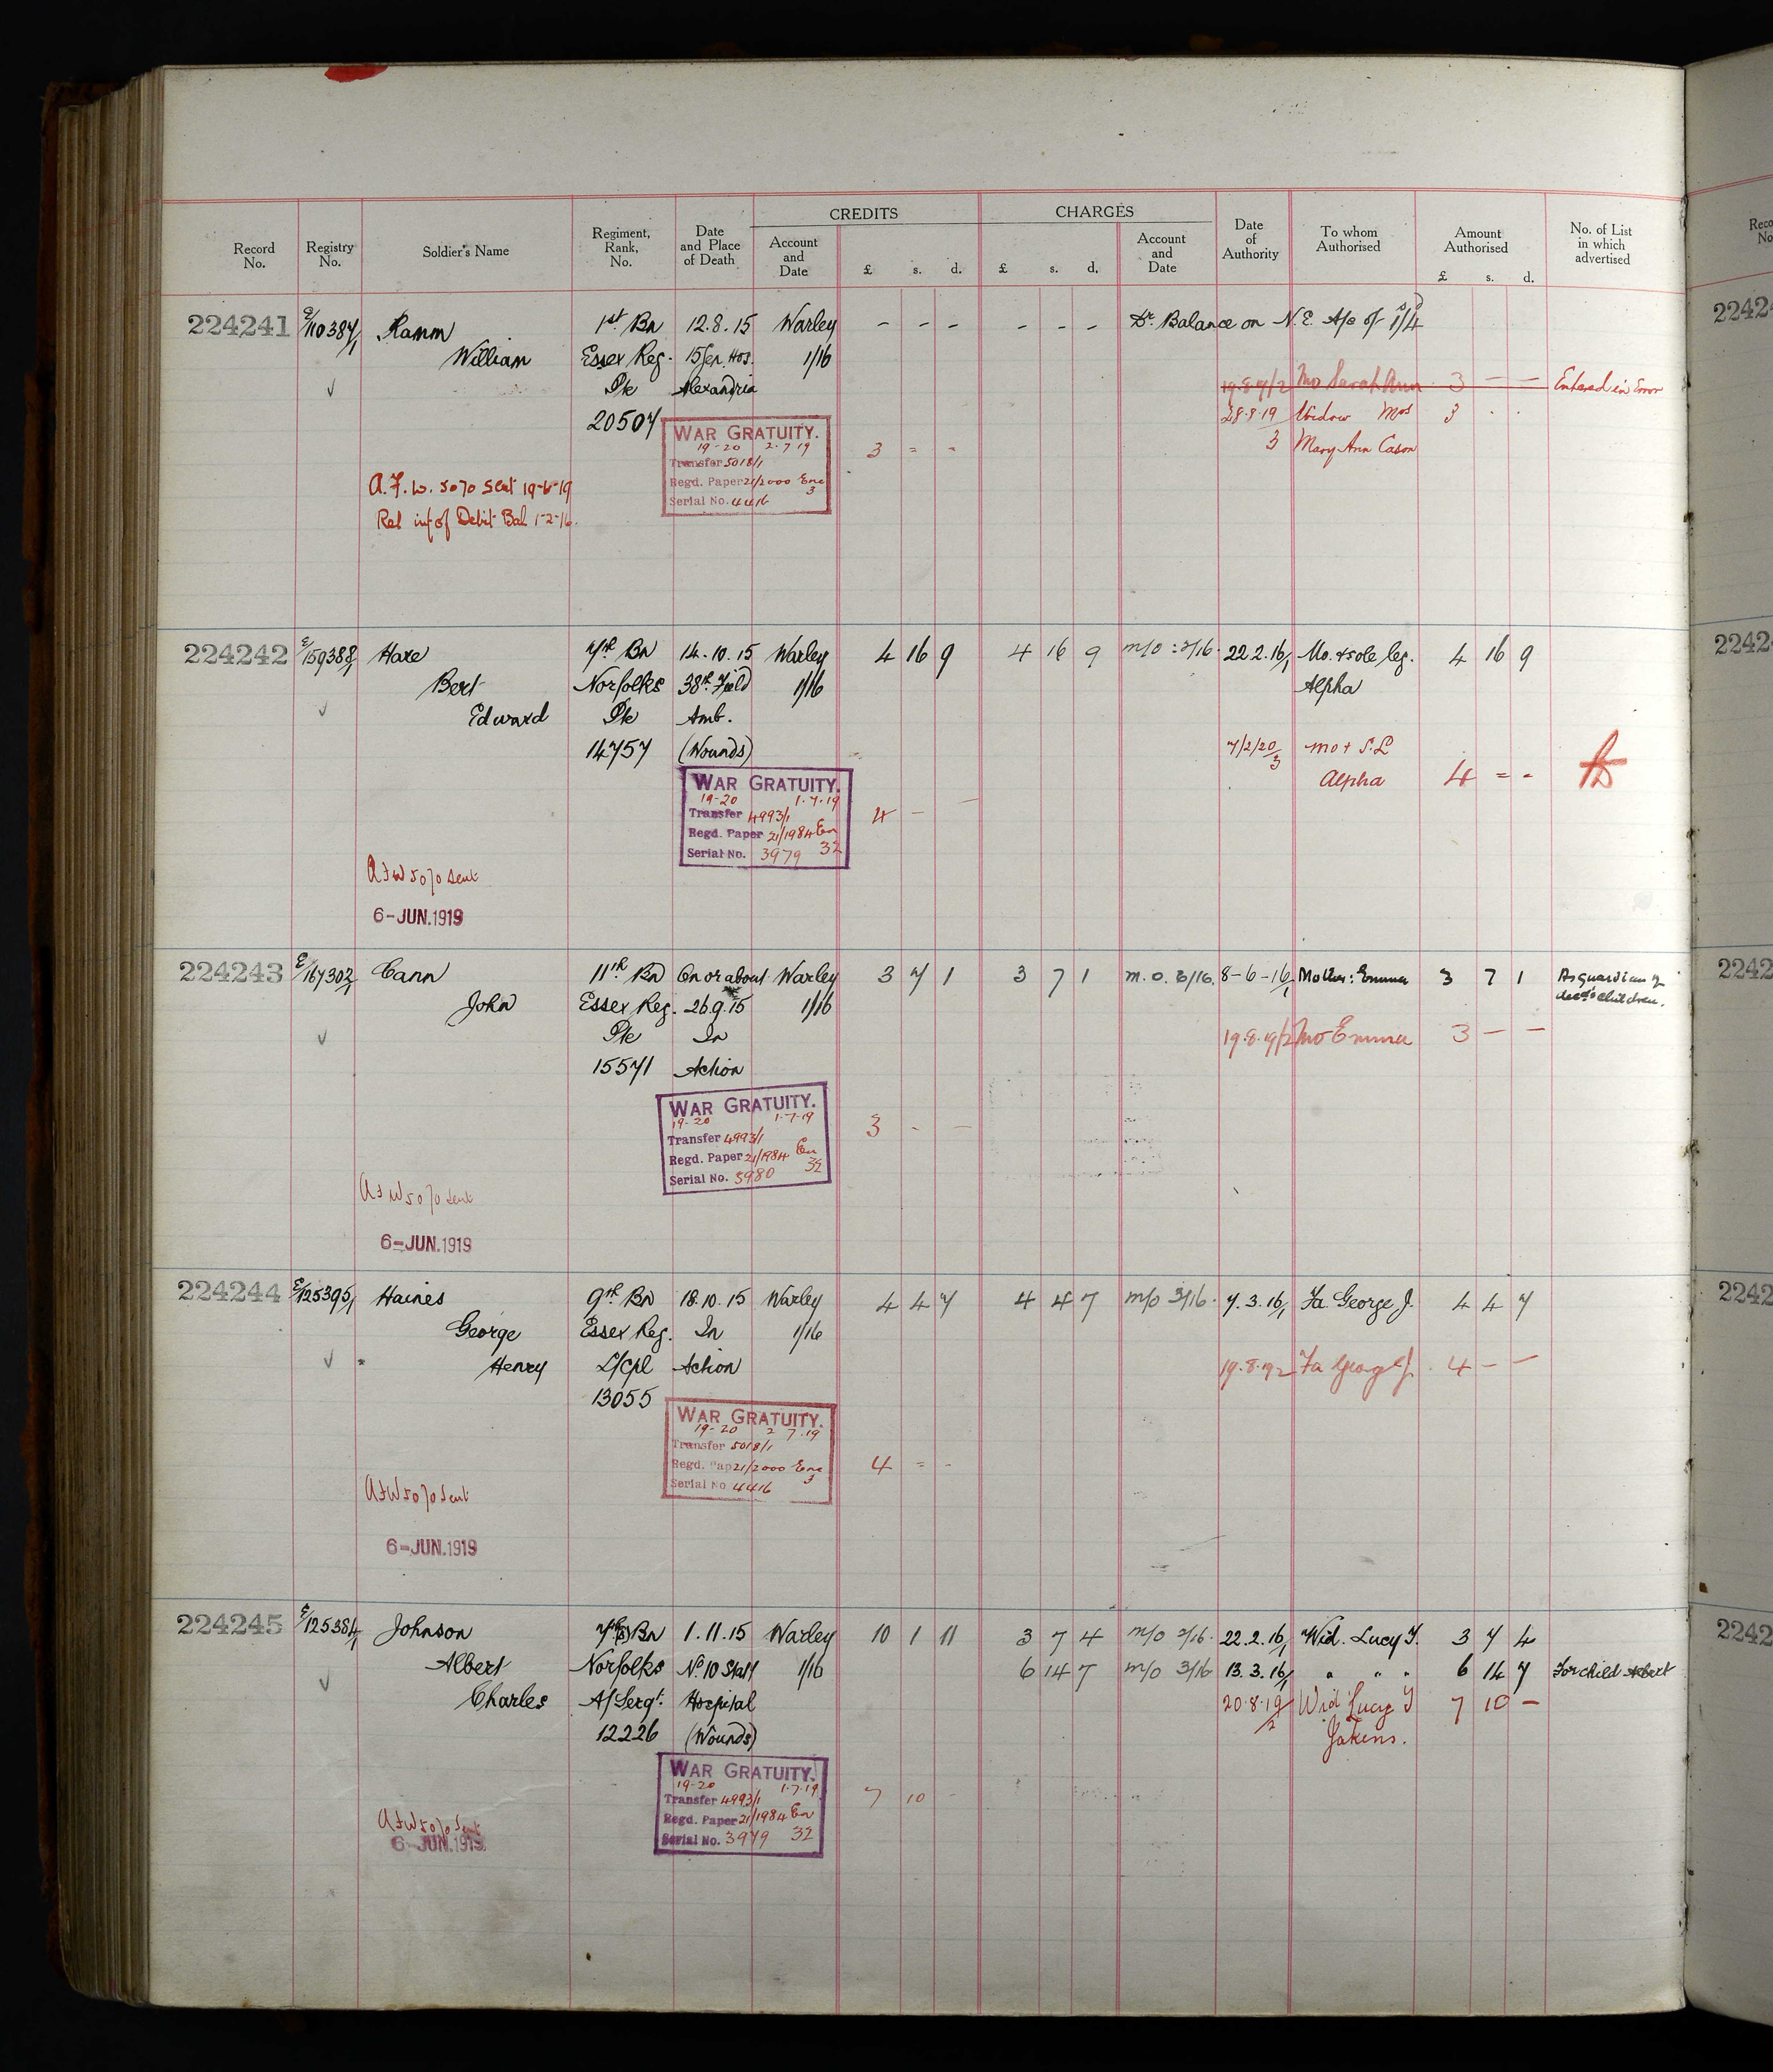 CREDITS CHARGES
Record No. Registry No. Soldier's Name Regiment, Rank, No. Date and Place of Death Account and Date £ s. d. £ s. d. Account and Date Date of Authority To whom Authorised Amount Authorised £ s. d. No. of List in which advertised
224241 E/110387/1 Ramm 1st Bn 12.8.15 Warley - - - - - - Dr. Balance on N.E. A/c of 1/4
William Essex Reg. 15 Gen. Hos. 1/16
Pte Alexandria 19.8.19/2 Mo Sarah Ann 3 - - Entered in Error
20507 28.8.19 Widow Mrs 3 . .
3 Mary Ann Cason
WAR GRATUITY.
19-20 2.7.19
Transfer 5018/1 3 = -
Regd. Paper 21/2000 Enc 3
Serial No. 4416
A.F.W. 5070 sent 19-6-19
Rel inf of Debit Bal 1-2-16.
224242 E/159388/1 Hare 7th Bn 14.10.15 Warley 4 16 9 4 16 9 m/o 2/16. 22.2.16/1 Mo. & sole leg. 4 16 9
Bert Norfolks 38th Field 1/16 Alpha
Edward Pte Amb.
14757 (Wounds) 7/2/20/3 Mo + S.L
Alpha 4 = -
WAR GRATUITY.
19-20 1.7.19
Transfer 4993/1 4 - -
Regd. Paper 21/1984 En 32
Serial No. 3979
AFW 5070 sent
6-JUN.1919
224243 E/167302/1 Cann 11th Bn On or about Warley 3 7 1 3 7 1 m.o. 6/16. 8-6-16/1 Mother: Emma 3 7 1 As guardian of
John Essex Reg. 26.9.15 1/16 decd's children.
Pte In 19.8.19/2 Mo Emma 3 - -
15571 Action
WAR GRATUITY.
19-20 1-7-19
Transfer 4993/1 3 - -
Regd. Paper 21/1984 En 32
Serial No. 3980
AFW 5070 sent
6-JUN.1919
224244 E/125395/1 Haines 9th Bn 18.10.15 Warley 4 4 7 4 4 7 m/o 3/16. 7.3.16/1 Fa. George J. 4 4 7
George Essex Reg. In 1/16
Henry L/Cpl Action 19.8.19/2 Fa George J. 4 - -
13055
WAR GRATUITY.
19-20 2 7.19
Transfer 5018/1
Regd. Pap 21/2000 Enc 3 4 = -
Serial No 4416
AFW 5070 sent
6-JUN.1919
224245 E/125384/1 Johnson 7th (S) Bn 1.11.15 Warley 10 1 11 3 7 4 m/o 2/16. 22.2.16/1 Wid. Lucy Y. 3 7 4
Albert Norfolks No. 10 Staty 1/16 6 14 7 m/o 3/16 13.3.16/1 " " " 6 14 7 For child Albert
Charles A/Sergt. Hospital 20.8.19/2 Wid Lucy Y 7 10 -
12226 (Wounds) Jakens.
WAR GRATUITY.
19-20 1.7.19
Transfer 4993/1 7 10 -
Regd. Paper 21/1984 En 32
Serial No. 3979
AFW 5070 Sent
6-JUN.1919